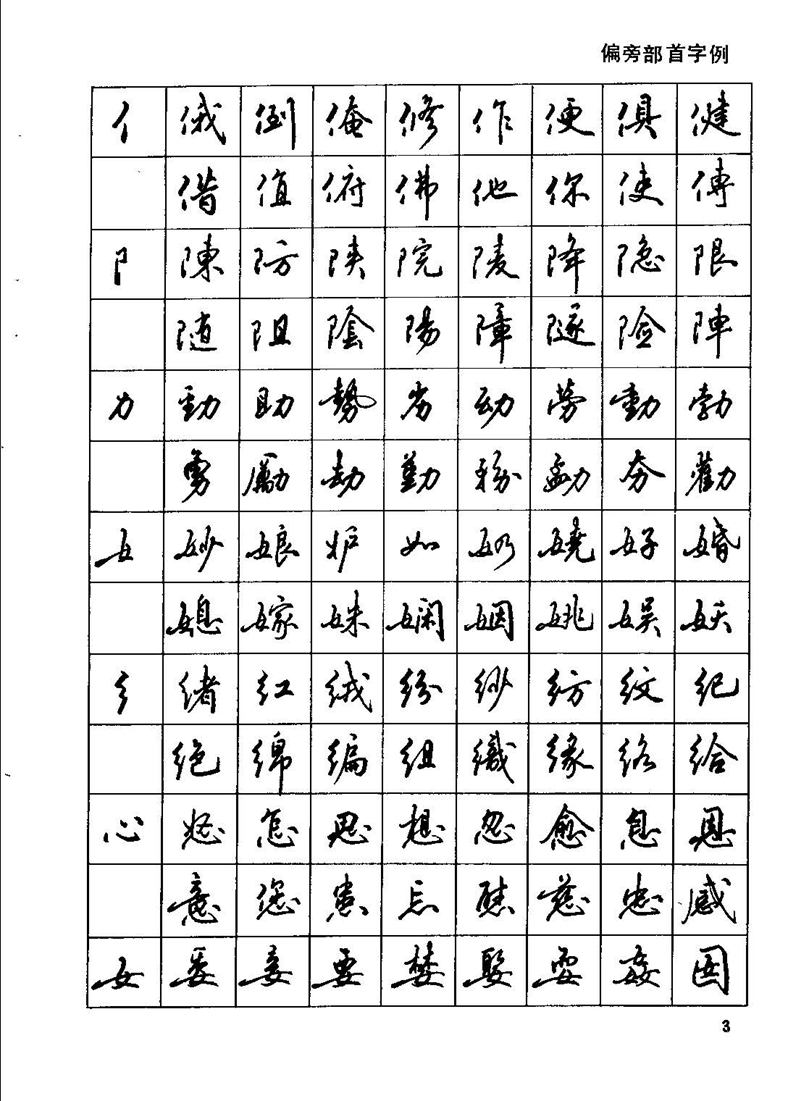 偏旁部首字例
亻 俄 倒 俺 修 作 便 俱 健
借 值 俯 佛 他 你 使 傅
阝 陳 防 陕 院 陵 降 隐 限
随 阻 陰 陽 障 隧 险 陣
力 動 助 勢 劣 幼 劳 勤 勃
勇 勵 劫 勤 勁 夯 勸
女 妙 娘 妒 如 奶 嬈 好 婚
媳 嫁 姝 嫻 姻 姚 娱 妖
纟 绪 红 绒 纷 纱 纺 纹 纪
绝 绵 编 组 織 缘 络 给
心 怒 怎 思 想 忽 愈 息 恩
意 您 患 忘 慈 忠 感
女 委 妾 要 婪 娶 耍 姦
3